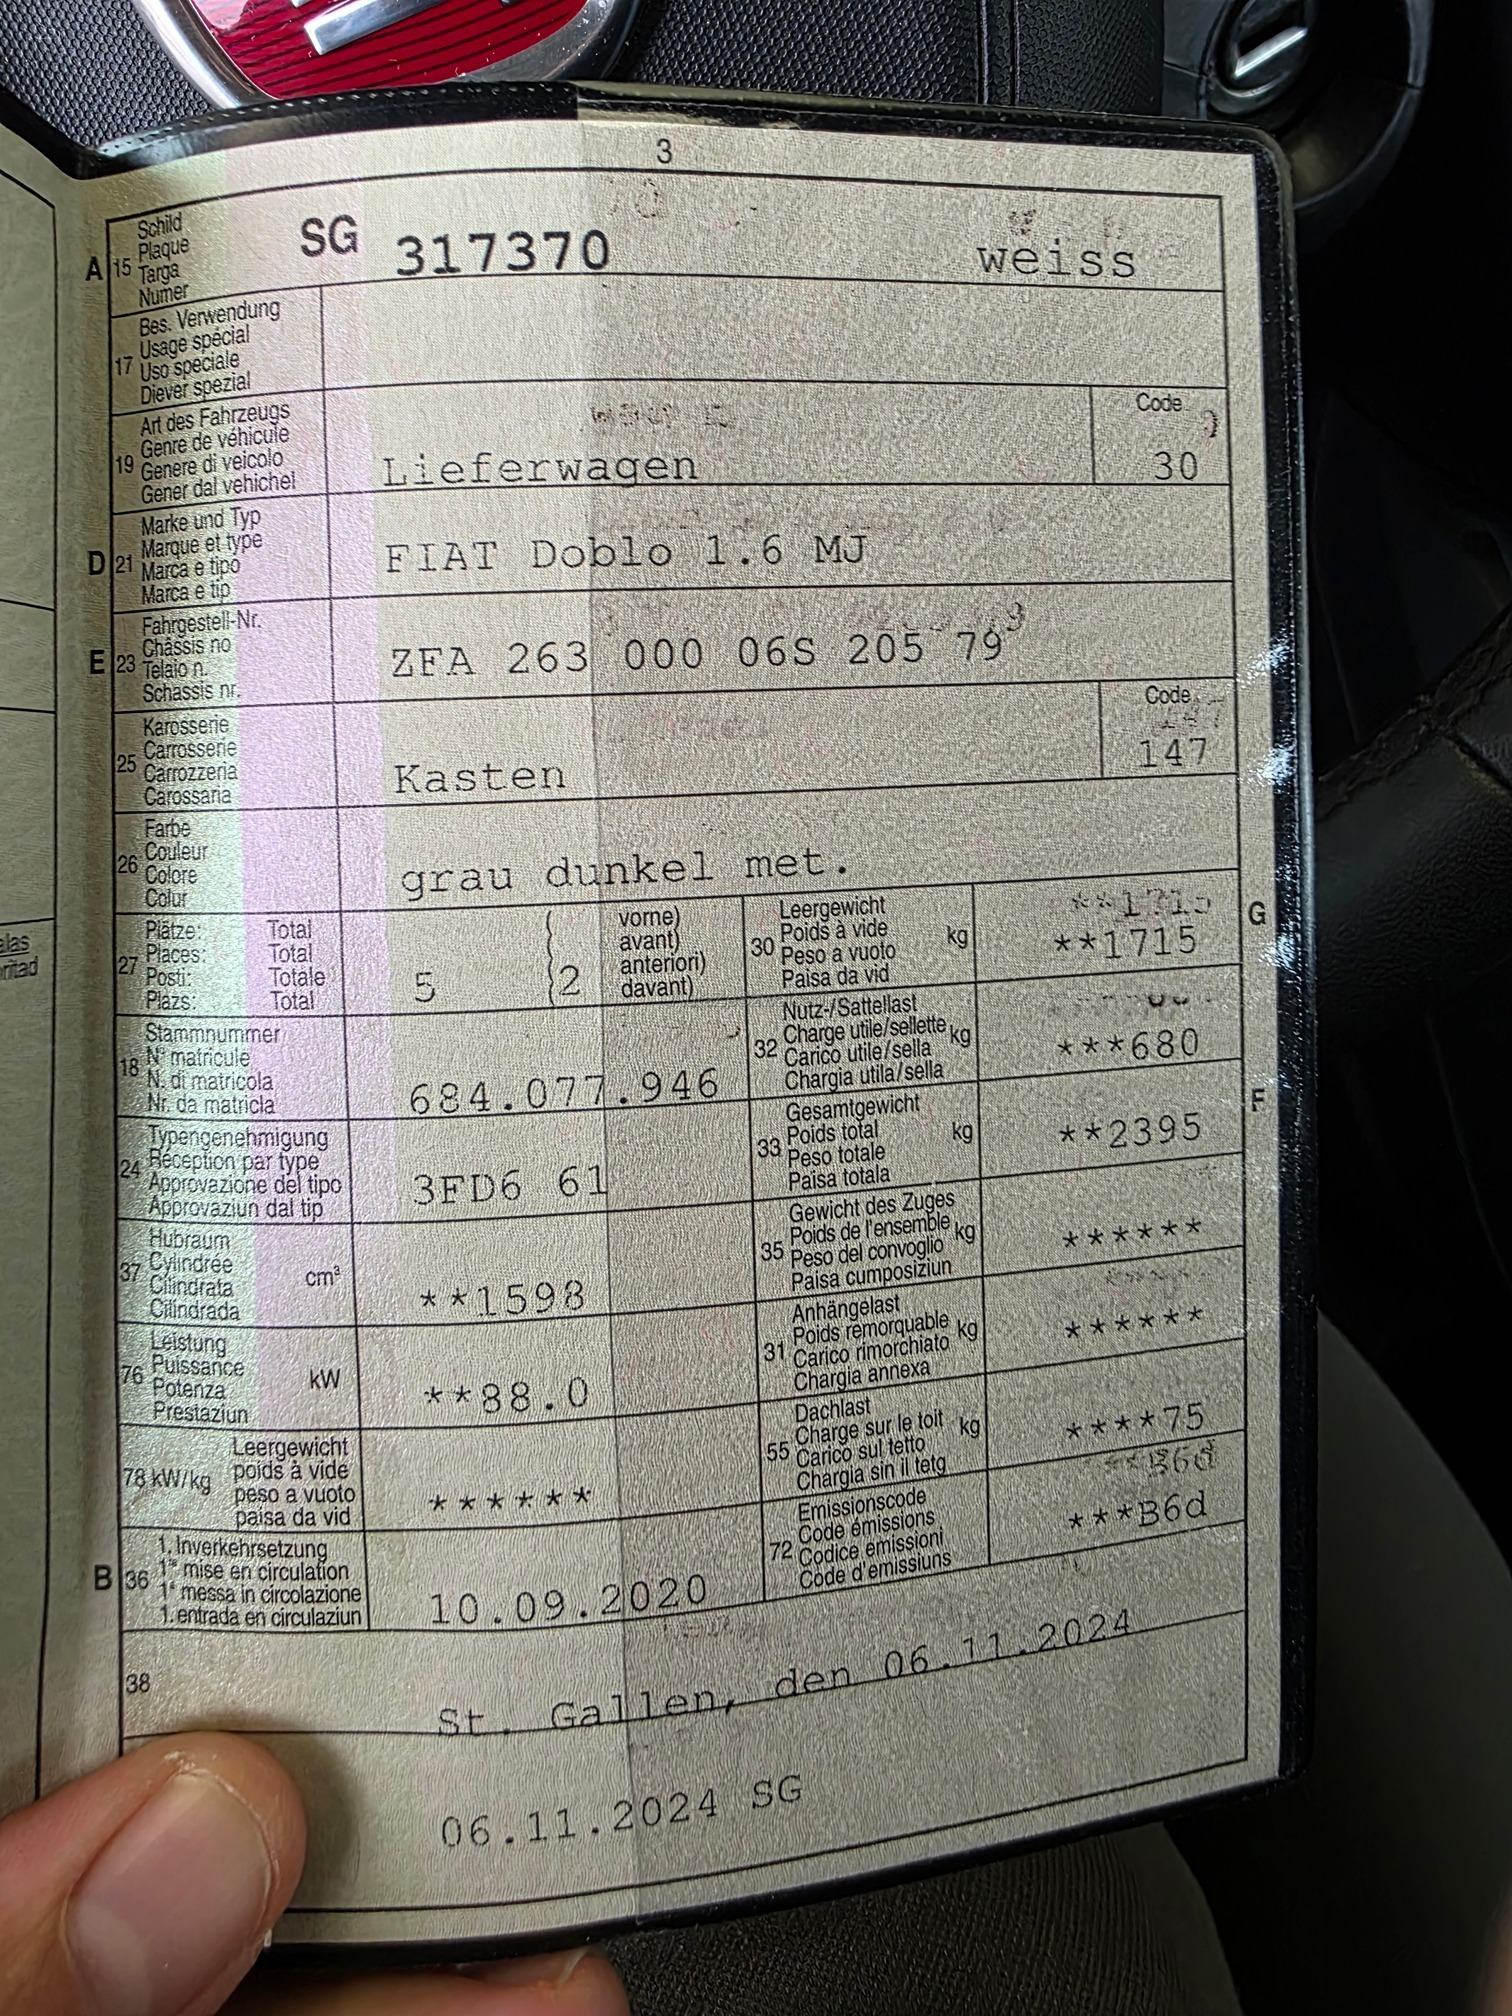 3
A 15 Schild
Plaque
Targa
Numer
SG 317370 weiss
17 Bes. Verwendung
Usage spécial
Uso speciale
Diever spezial
19 Art des Fahrzeugs
Genre de véhicule
Genere di veicolo
Gener dal vehichel
Lieferwagen
Code
30
D 21 Marke und Typ
Marque et type
Marca e tipo
Marca e tip
FIAT Doblo 1.6 MJ
E 23 Fahrgestell-Nr.
Châssis no
Telaio n.
Schassis nr.
ZFA 263 000 06S 205 79
25 Karosserie
Carrosserie
Carrozzeria
Carossaria
Kasten
Code
147
26 Farbe
Couleur
Colore
Colur
grau dunkel met.
27 Plätze: Total
Places: Total
Posti: Totale
Plazs: Total
5 2
vorne)
avant)
anteriori)
davant)
30 Leergewicht
Poids à vide
Peso a vuoto
Paisa da vid
kg
**1715
G
18 Stammnummer
N° matricule
N. di matricola
Nr. da matricla
684.077.946
32 Nutz-/Sattellast
Charge utile/sellette
Carico utile/sella
Chargia utila/sella
kg
***680
24 Typengenehmigung
Réception par type
Approvazione del tipo
Approvaziun dal tip
3FD6 61
33 Gesamtgewicht
Poids total
Peso totale
Paisa totala
kg
**2395
F
37 Hubraum
Cylindrée
Cilindrata
Cilindrada
cm³
**1598
35 Gewicht des Zuges
Poids de l'ensemble
Peso del convoglio
Paisa cumposiziun
kg
******
76 Leistung
Puissance
Potenza
Prestaziun
kW
**88.0
31 Anhängelast
Poids remorquable
Carico rimorchiato
Chargia annexa
kg
******
78 kW/kg
Leergewicht
poids à vide
peso a vuoto
paisa da vid
******
55 Dachlast
Charge sur le toit
Carico sul tetto
Chargia sin il tetg
kg
****75
B 36 1. Inverkehrsetzung
1re mise en circulation
1a messa in circolazione
1. entrada en circulaziun
10.09.2020
72 Emissionscode
Code émissions
Codice emissioni
Code d'emissiuns
***B6d
38
St. Gallen, den 06.11.2024
06.11.2024 SG